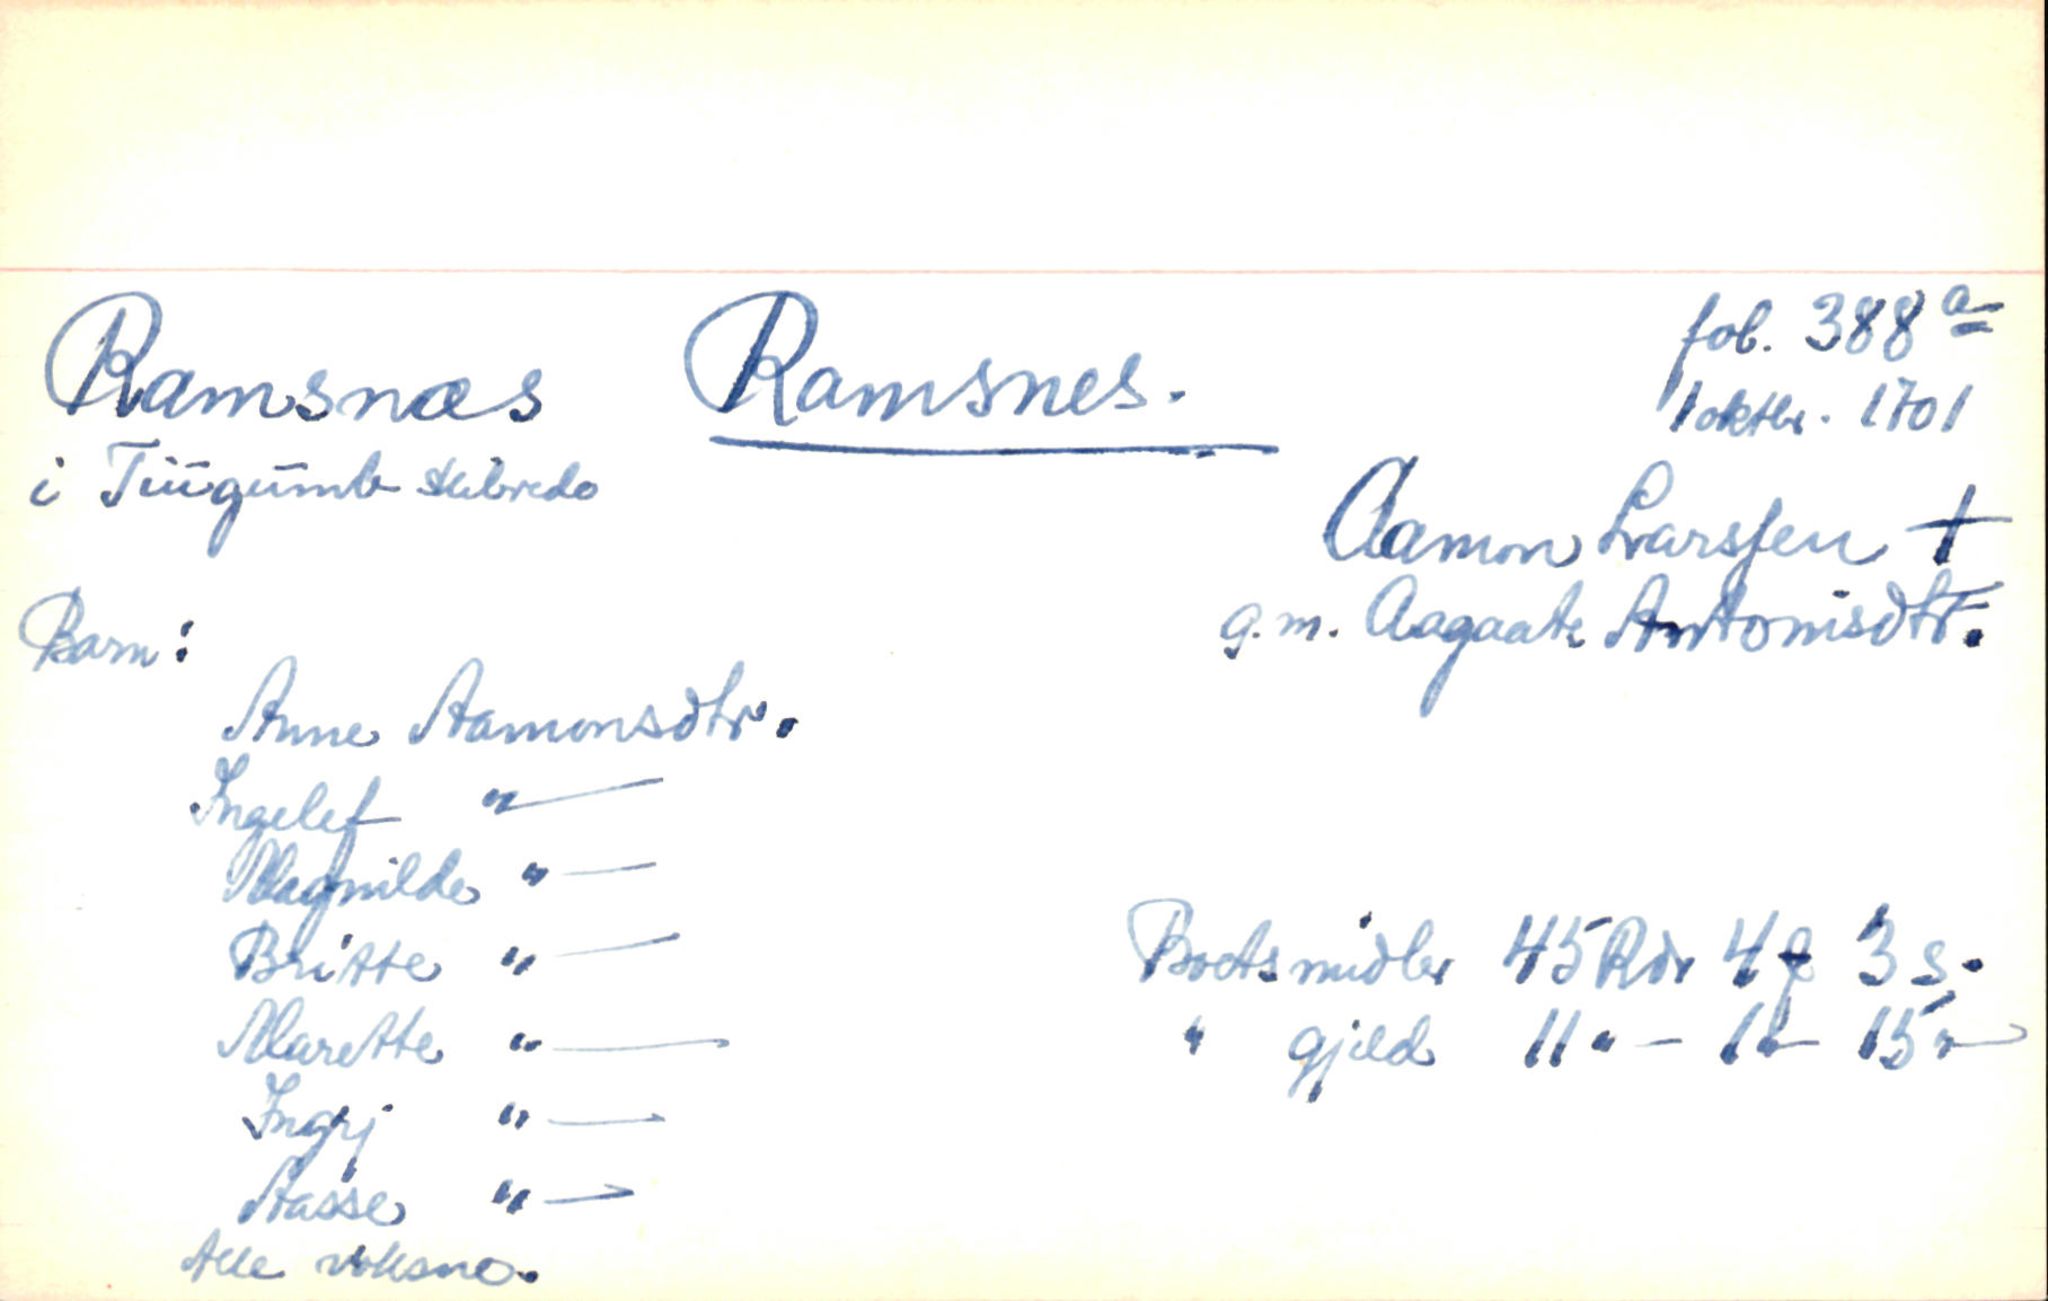 Ramsnæs Ramsnes. fol. 388 a
1 oktbr. 1701
i Tüügümb skibrede
Aamon Larssen +
g.m. Aagaate Antonisdtr.
Barn:
Anne Aamonsdtr.
Ingelef " —
Magnilde " —
Britte " —
Marette " —
Ingrj " —
Aasse " —
Alle voksne.
Boets midler 45 Rdr 4 ƒ 3 s.
" gjeld 11 " — 1 " — 15 " —